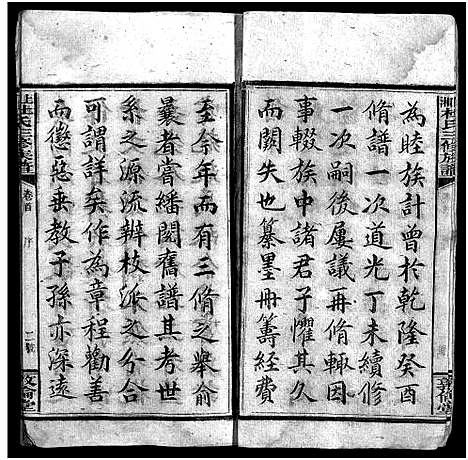 為睦族計曾於乾隆癸酉
脩譜一次道光丁未續修
一次嗣後屢議再脩輒因
事輟族中諸君子懼其久
而闕失也纂墨冊籌經費
至今年而有三脩之舉俞
曩者嘗繙閱舊譜其考世
系之源流辨枝派之分合
可謂詳矣作為章程勸善
而懲惡垂教子孫亦深遠
卷首
序
敦倫堂